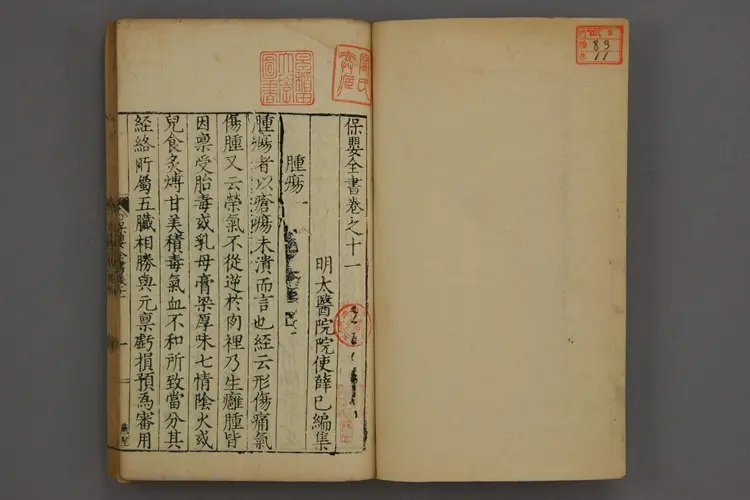 保嬰全書卷之十一
明太醫院院使薛己編集
腫瘍一
腫瘍者以瘡瘍未潰而言也經云形傷痛氣
傷腫又云榮氣不從逆於肉裡乃生癰腫皆
因禀受胎毒或乳母膏梁厚味七情陰火或
兒食炙煿甘美積毒氣血不和所致當分其
經絡所屬五臟相勝與元禀虧損預為審用
保嬰全書
一
89
11